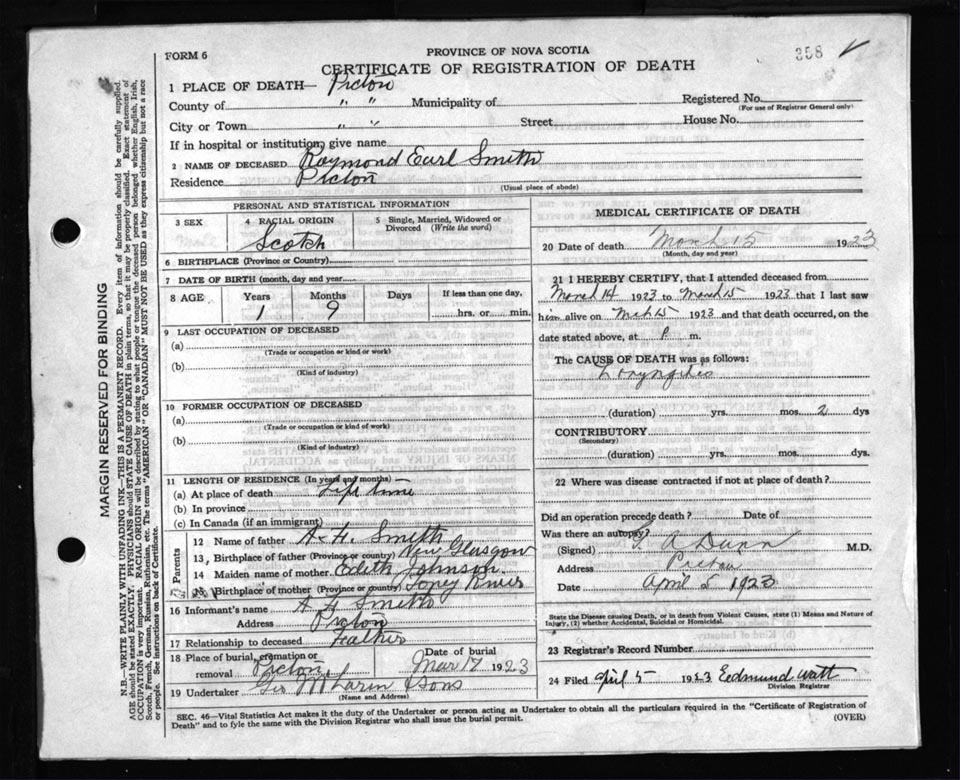 FORM 6
PROVINCE OF NOVA SCOTIA
358
CERTIFICATE OF REGISTRATION OF DEATH
1 PLACE OF DEATH— Pictou
County of " " Municipality of Registered No.
(For use of Registrar General only)
City or Town " " Street House No.
If in hospital or institution, give name
2 NAME OF DECEASED Raymond Earl Smith
Residence Pictou
(Usual place of abode)
PERSONAL AND STATISTICAL INFORMATION
3 SEX 4 RACIAL ORIGIN 5 Single, Married, Widowed or Divorced (Write the word)
Male Scotch
6 BIRTHPLACE (Province or Country)
7 DATE OF BIRTH (month, day and year)
8 AGE Years Months Days If less than one day,
1 9 hrs. or min.
9 LAST OCCUPATION OF DECEASED
(a)
(Trade or occupation or kind or work)
(b)
(Kind of industry)
10 FORMER OCCUPATION OF DECEASED
(a)
(Trade or occupation or kind of work)
(b)
(Kind of industry)
11 LENGTH OF RESIDENCE (In years and months)
(a) At place of death Life time
(b) In province
(c) In Canada (if an immigrant)
Parents
12 Name of father A. H. Smith
13 Birthplace of father (Province or country) New Glasgow
14 Maiden name of mother Edith Johnson
15 Birthplace of mother (Province or country) Toney River
16 Informant's name A H Smith
Address Pictou
17 Relationship to deceased Father
18 Place of burial, cremation or removal Pictou Date of burial Mar 17 1923
19 Undertaker Geo Sons
(Name and Address)
MEDICAL CERTIFICATE OF DEATH
20 Date of death March 15 1923
(Month, day and year)
21 I HEREBY CERTIFY, that I attended deceased from
March 14 1923 to March 15 1923 that I last saw
him alive on Mch 15 1923 and that death occurred, on
date stated above, at P. m.
The CAUSE OF DEATH was as follows:
Laryngitis
(duration) yrs. mos. 2 dys
CONTRIBUTORY
(Secondary)
(duration) yrs. mos. dys.
22 Where was disease contracted if not at place of death?
Did an operation precede death? Date of
Was there an autopsy?
(Signed) A Dunn M.D.
Address Pictou
Date April 5 1923
State the Disease causing Death, or in death from Violent Causes, state (1) Means and Nature of
Injury, (2) whether Accidental, Suicidal or Homicidal.
23 Registrar's Record Number
24 Filed April 5 1923 Edmund Watt
Division Registrar
SEC. 46—Vital Statistics Act makes it the duty of the Undertaker or person acting as Undertaker to obtain all the particulars required in the "Certificate of Registration of
Death" and to fyle the same with the Division Registrar who shall issue the burial permit. (OVER)
MARGIN RESERVED FOR BINDING
N.B.—WRITE PLAINLY WITH UNFADING INK—THIS IS A PERMANENT RECORD. Every item of information should be carefully supplied.
AGE should be stated EXACTLY. PHYSICIANS should STATE CAUSE OF DEATH in plain terms, so that it may be properly classified. Exact statement of
OCCUPATION is very important. RACIAL ORIGIN will be described by stating to what people or tongue the deceased person belonged whether English, Irish,
Scotch, French, German, Russian, Ruthenian, etc. The terms "AMERICAN" OR "CANADIAN" MUST NOT BE USED as they express citizenship but not a race
or people. See instructions on back of Certificate.